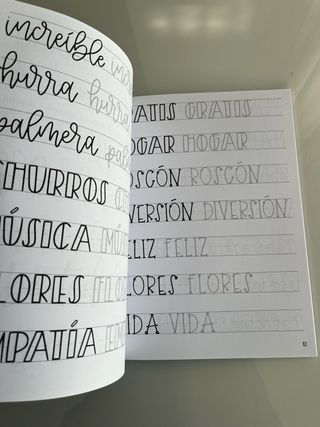 increíble incre
hurra hurra
palmera pal
CHURROS C
MÚSICA MÚS
LORES FLO
MPATÍA
ATIS GRATIS
OGAR HOGAR
OSCÓN ROSCÓN
VERSIÓN DIVERSIÓN
ELIZ FELIZ
LORES FLORES
IDA VIDA